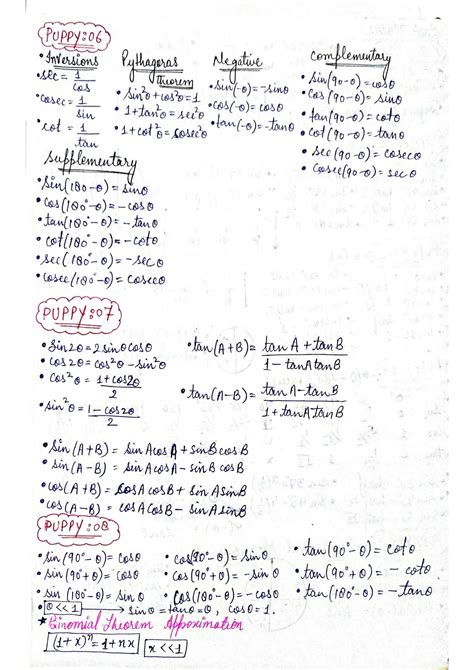 PUPPY:06
• Inversions
• sec = 1/cos
• cosec = 1/sin
• cot = 1/tan
Pythagoras theorem
• sin²θ + cos²θ = 1
• 1 + tan²θ = sec²θ
• 1 + cot²θ = cosec²θ
Negative
• sin(-θ) = -sinθ
• cos(-θ) = cosθ
• tan(-θ) = -tanθ
Complementary
• sin(90-θ) = cosθ
• cos(90-θ) = sinθ
• tan(90-θ) = cotθ
• cot(90-θ) = tanθ
• sec(90-θ) = cosecθ
• cosec(90-θ) = secθ
Supplementary
• sin(180-θ) = sinθ
• cos(180°-θ) = -cosθ
• tan(180°-θ) = -tanθ
• cot(180°-θ) = -cotθ
• sec(180°-θ) = -secθ
• cosec(180°-θ) = cosecθ
PUPPY:07
• sin2θ = 2sinθcosθ
• cos2θ = cos²θ - sin²θ
• cos²θ = 1+cos2θ/2
• sin²θ = 1-cos2θ/2
• tan(A+B) = tanA + tanB / 1 - tanAtanB
• tan(A-B) = tanA - tanB / 1 + tanAtanB
• sin(A+B) = sinAcosA + sinBcosB
• sin(A-B) = sinAcosA - sinBcosB
• cos(A+B) = cosAcosB + sinAsinB
• cos(A-B) = cosAcosB - sinAsinB
PUPPY:08
• sin(90°-θ) = cosθ
• sin(90°+θ) = cosθ
• sin(180°-θ) = sinθ
• cos(90°-θ) = sinθ
• cos(90°+θ) = -sinθ
• cos(180°-θ) = -cosθ
• tan(90°-θ) = cotθ
• tan(90°+θ) = -cotθ
• tan(180°-θ) = -tanθ
• θ<<1 → sinθ = tanθ = θ, cosθ = 1.
* Binomial Theorem Approximation
(1+x)ⁿ = 1+nx x<<1